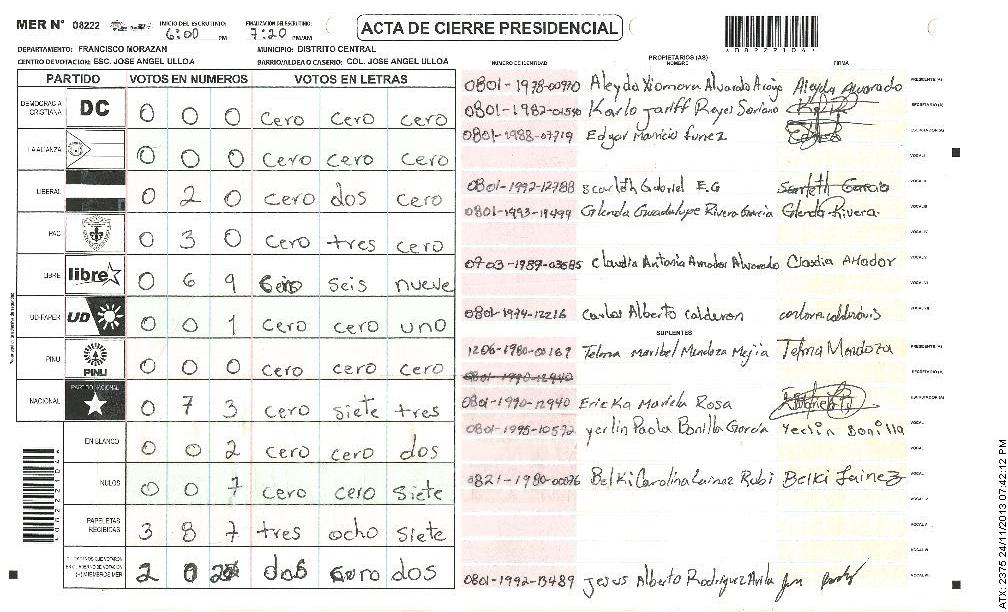 MER N° 08222 INICIO DEL ESCRUTINIO: 6:00 PM FINALIZACION DEL ESCRUTINIO: 7:20 PM/AM ACTA DE CIERRE PRESIDENCIAL
DEPARTAMENTO: FRANCISCO MORAZAN MUNICIPIO: DISTRITO CENTRAL
CENTRO DE VOTACION: ESC. JOSE ANGEL ULLOA BARRIO/ALDEA O CASERIO: COL. JOSE ANGEL ULLOA
PARTIDO VOTOS EN NUMEROS VOTOS EN LETRAS
DEMOCRACIA CRISTIANA DC 0 0 0 cero cero cero
LA ALIANZA 0 0 0 cero cero cero
LIBERAL 0 2 0 cero dos cero
PAC 0 3 0 cero tres cero
LIBRE libre 0 6 9 cero seis nueve
UD-FAPER UD 0 0 1 cero cero uno
PINU PINU 0 0 0 cero cero cero
NACIONAL PARTIDO NACIONAL 0 7 3 cero siete tres
EN BLANCO 0 0 2 cero cero dos
NULOS 0 0 7 cero cero siete
PAPELETAS RECIBIDAS 3 8 7 tres ocho siete
(+) MIEMBROS MER 2 0 2 dos cero dos
NUMERO DE IDENTIDAD PROPIETARIOS (AS) NOMBRE FIRMA
0801-1978-00970 Aleyda Xiomara Alvarado Aleyda Alvarado PRESIDENTE (A)
0801-1982-01540 Karlo Jariff Reyes Soriano SECRETARIO (A)
0801-1988-07719 Edgar Mauricio funez ESCRUTADOR (A)
VOCAL I
0801-1992-12788 Scarleth Gabriel E.G Scarleth Garcia VOCAL II
0801-1993-19499 Glenda Guadalupe Rivera Garcia Glenda Rivera VOCAL III
VOCAL IV
0703-1989-03585 Claudia Antonia Amador Alvarado Claudia Amador VOCAL V
VOCAL VI
0801-1974-12216 Carlos Alberto calderon VOCAL VII
SUPLENTES
1206-1980-00167 Telma Maribel Mendoza Mejia Telma Mendoza PRESIDENTE (A)
0801-1990-12940 SECRETARIO (A)
0801-1990-12940 Ericka Mariela Rosa ESCRUTADOR (A)
0801-1995-10572 yerlin Paola Bonilla García Yerlin Bonilla VOCAL I
0821-1980-00076 Belki Carolina Lainez Rubi Belki Lainez
0801-1992-13489 Jesus Alberto Rodriguez Avila VOCAL VII
ATX 2375 24/11/2013 07:42:12 PM